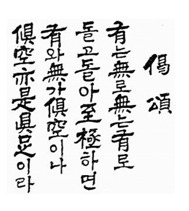 偈頌
有는無로無는有로
돌고돌아至極하면
有와無가俱空이나
俱空亦是具足이라